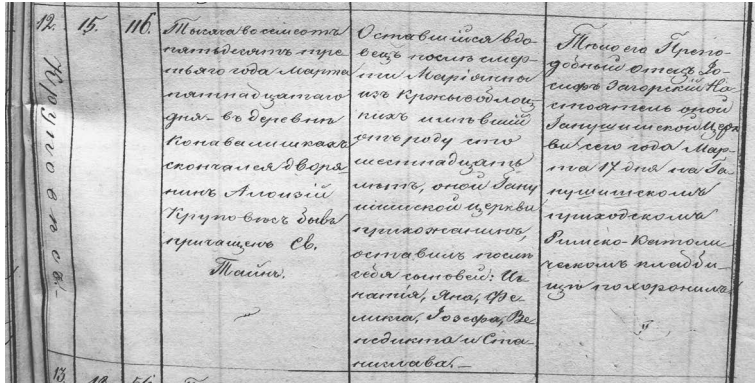 12. 15. 116.
Круповесъ.
Тысяча восемсотъ
пятьдесятъ тре
тьяго года Марта
пятнадцатаго
дня въ деревнѣ
Конавалишкахъ
скончался дворя
нинъ Алоизій
Круповесъ бывъ
причащенъ Св.
Тайнъ.
Оставшійся вдо
вецъ послѣ смер
ти Маріянны
изъ
кихъ имѣвшій
отъ роду сто
шестнадцать
лѣтъ, оной Гану
шишской церкви
прихожанинъ,
оставилъ послѣ
себя сыновей: Иг
натія, Яна, Фе
ликса, Іозефа, Ве
недикта и Ста
нислава.
Тѣло его Препо
добный отецъ Іо
сифъ Загорскій На
стоятель оной
Ганушишской Церк
ви сего года Мар
та 17 дня на Га
нушишскомъ
приходскомъ
Римско-Католи
ческомъ кладби
щѣ похоронилъ
13.